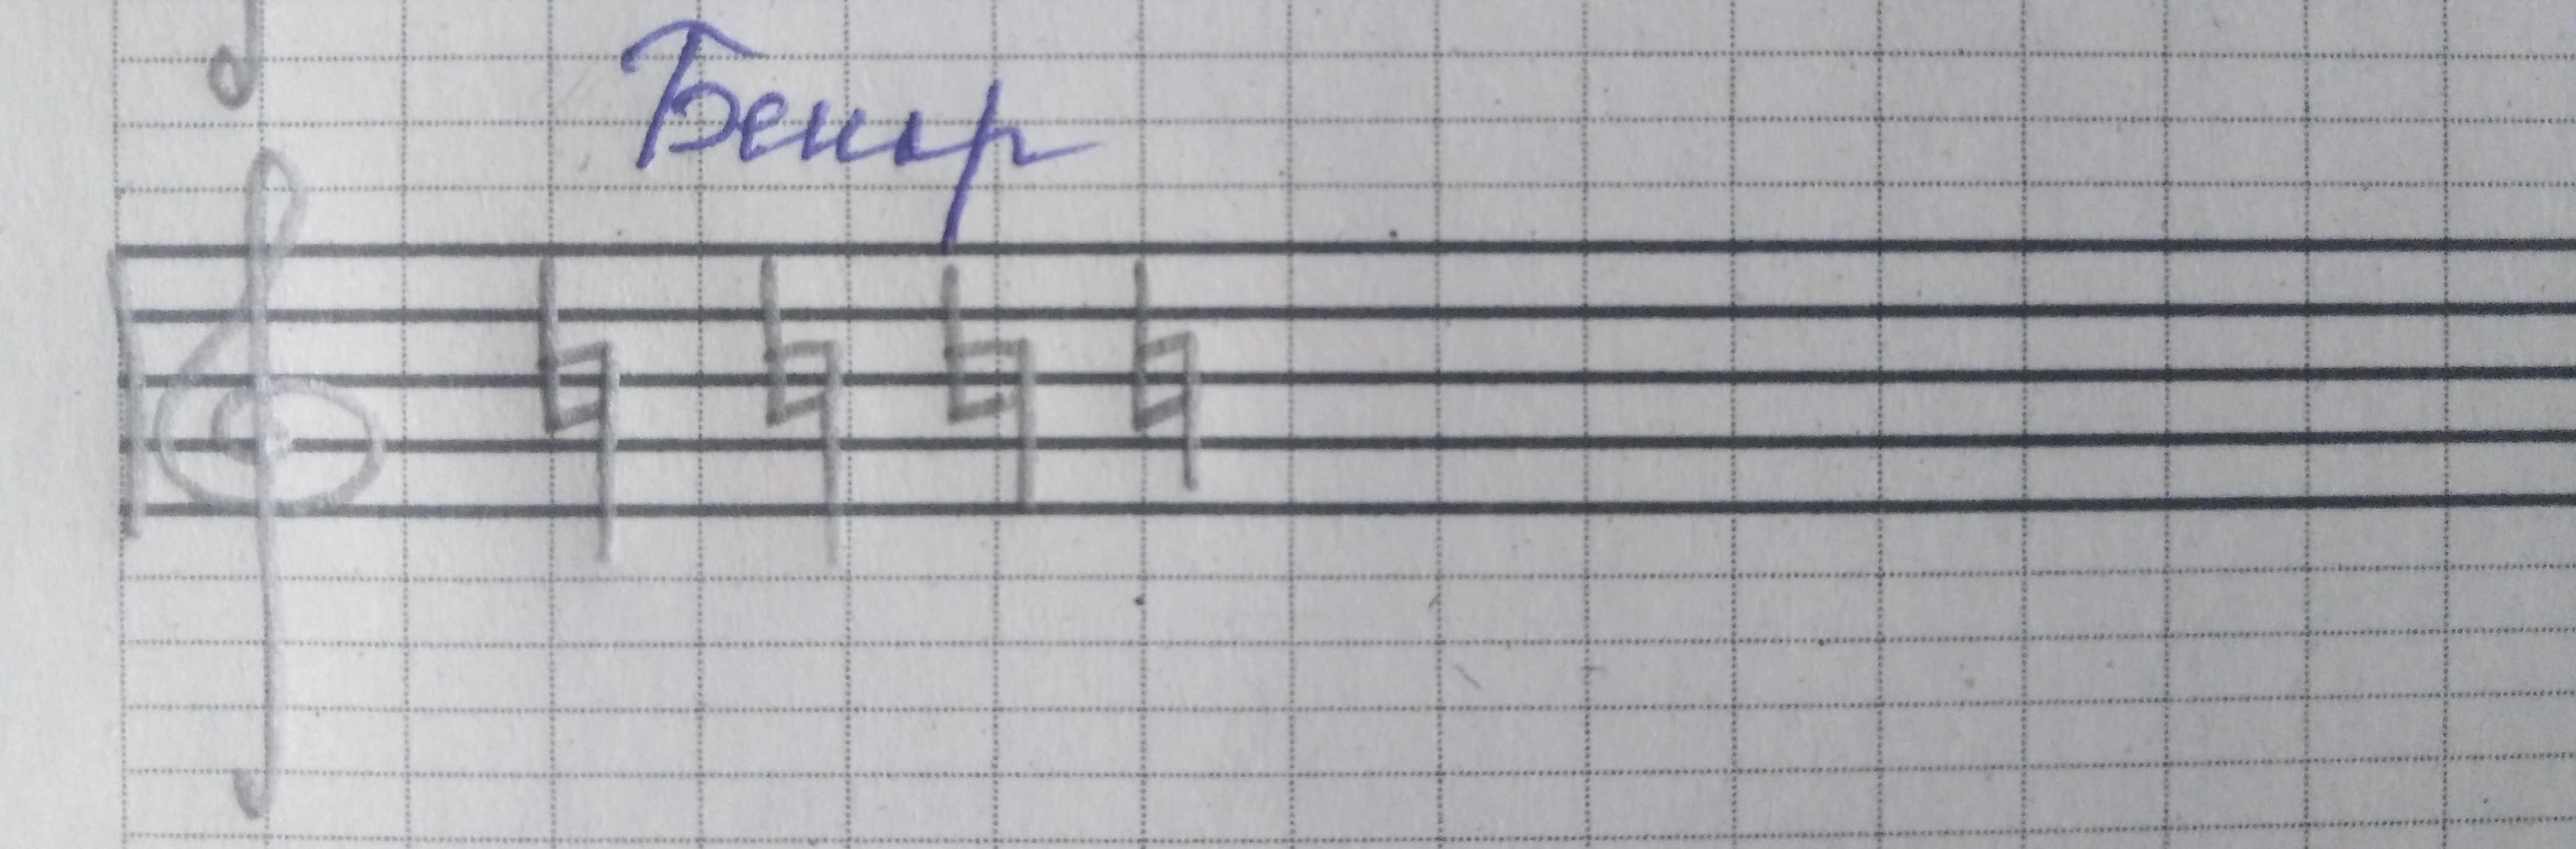 Бекар